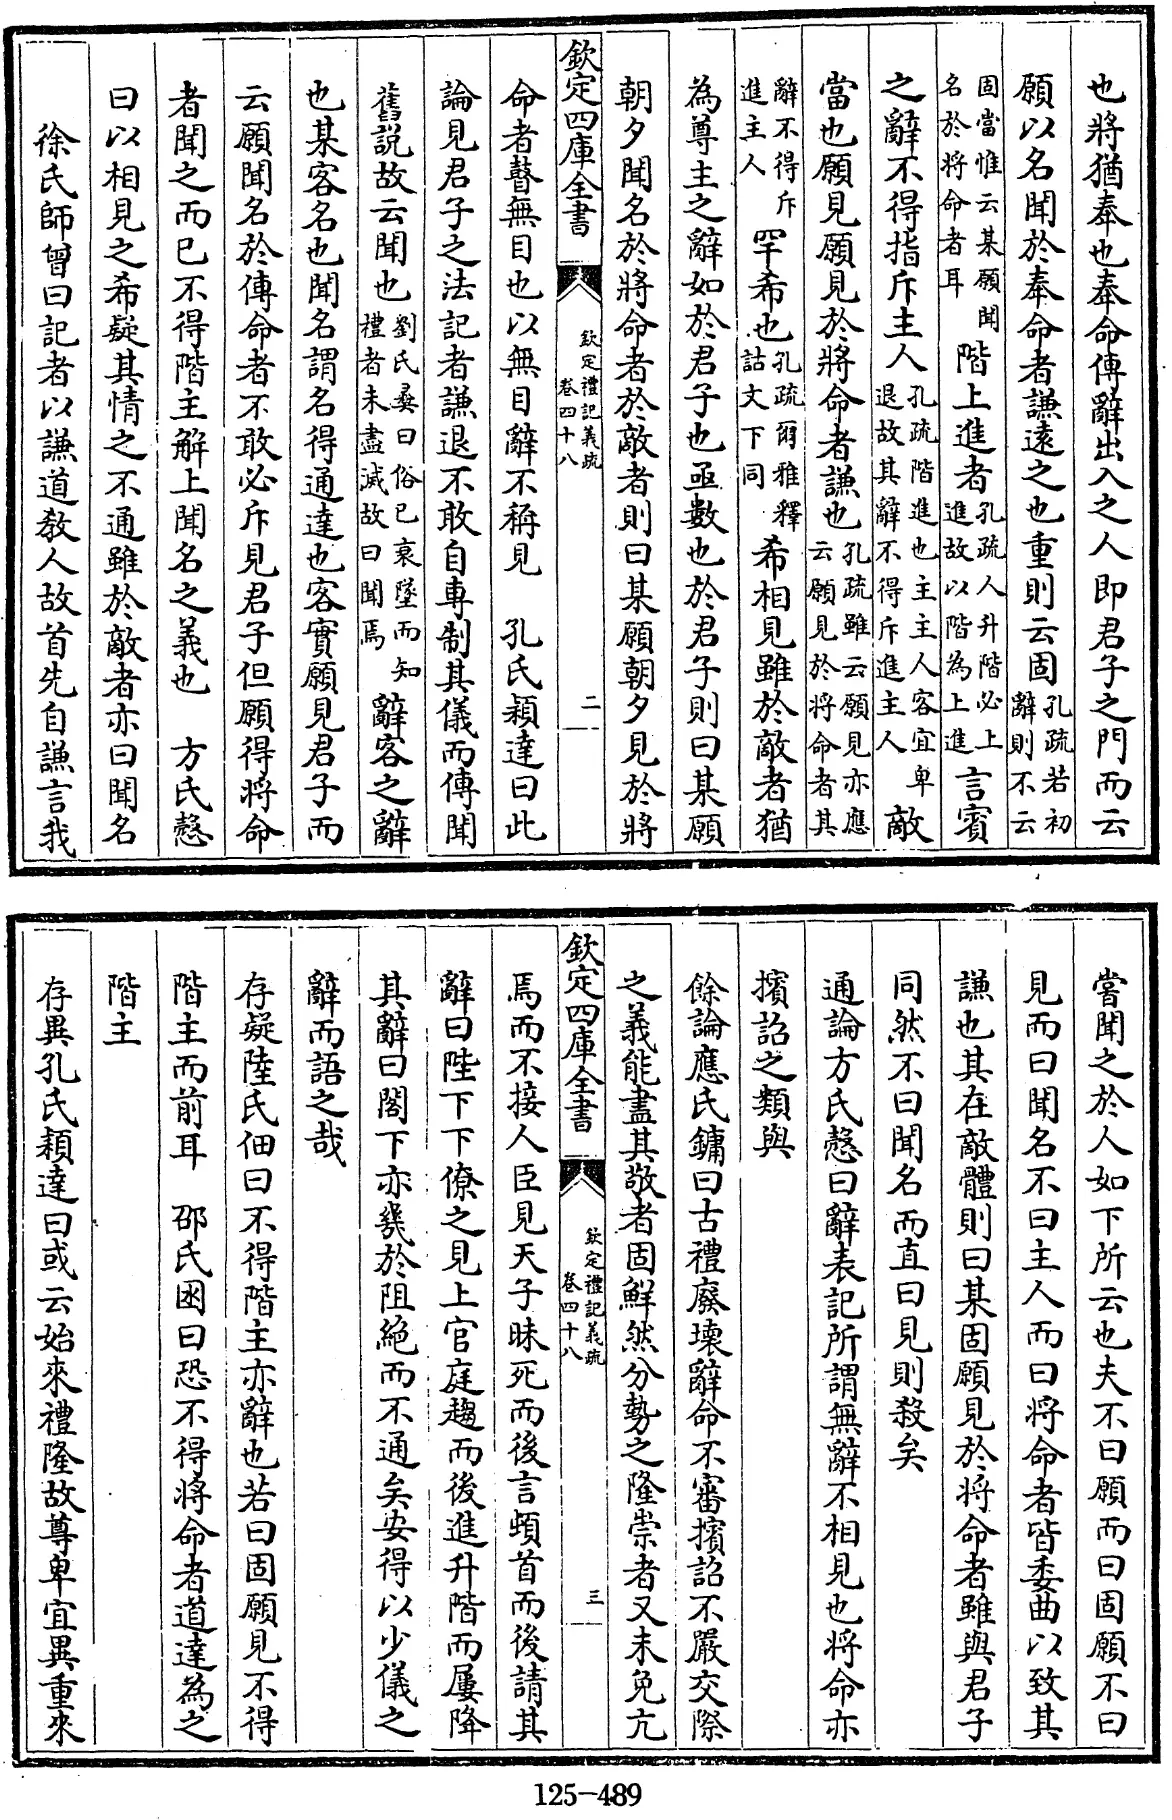 也將猶奉也奉命傳辭出入之人即君子之門而云
願以名聞於奉命者謙遠之也重則云固孔疏若初辭則不云
固當惟云某願聞名於將命者耳階上進者孔疏人升階必上進故以階為上進言賓
之辭不得指斥主人孔疏階進也主主人客宜卑退故其辭不得斥進主人敵
當也願見願見於將命者謙也孔疏雖云願見亦應云願見於將命者其
辭不得斥進主人罕希也孔疏爾雅釋詁文下同希相見雖於敵者猶
為尊主之辭如於君子也亟數也於君子則曰某願
朝夕聞名於將命者於敵者則曰某願朝夕見於將
欽定四庫全書 欽定禮記義疏卷四十八 二
命者瞽無目也以無目辭不稱見 孔氏穎達曰此
論見君子之法記者謙退不敢自専制其儀而傳聞
舊說故云聞也劉氏彝曰俗已衰墜而知禮者未盡滅故曰聞焉辭客之辭
也某客名也聞名謂名得通達也客實願見君子而
云願聞名於傳命者不敢必斥見君子但願得將命
者聞之而已不得階主解上聞名之義也 方氏慤
曰以相見之希疑其情之不通雖於敵者亦曰聞名
徐氏師曾曰記者以謙道敎人故首先自謙言我
嘗聞之於人如下所云也夫不曰願而曰固願不曰
見而曰聞名不曰主人而曰將命者皆委曲以致其
謙也其在敵體則曰某固願見於將命者雖與君子
同然不曰聞名而直曰見則殺矣
通論方氏慤曰辭表記所謂無辭不相見也將命亦
擯詔之類與
餘論應氏鏞曰古禮廢壞辭命不審擯詔不嚴交際
之義能盡其敬者固鮮然分勢之隆崇者又未免亢
欽定四庫全書 欽定禮記義疏卷四十八 三
焉而不接人臣見天子昧死而後言頓首而後請其
辭曰陛下下僚之見上官庭趨而後進升階而屢降
其辭曰閤下亦幾於阻絶而不通矣安得以少儀之
辭而語之哉
存疑陸氏佃曰不得階主亦辭也若曰固願見不得
階主而前耳 邵氏囦曰恐不得將命者道達為之
階主
存異孔氏穎達曰或云始來禮隆故尊卑宜異重來
125-489